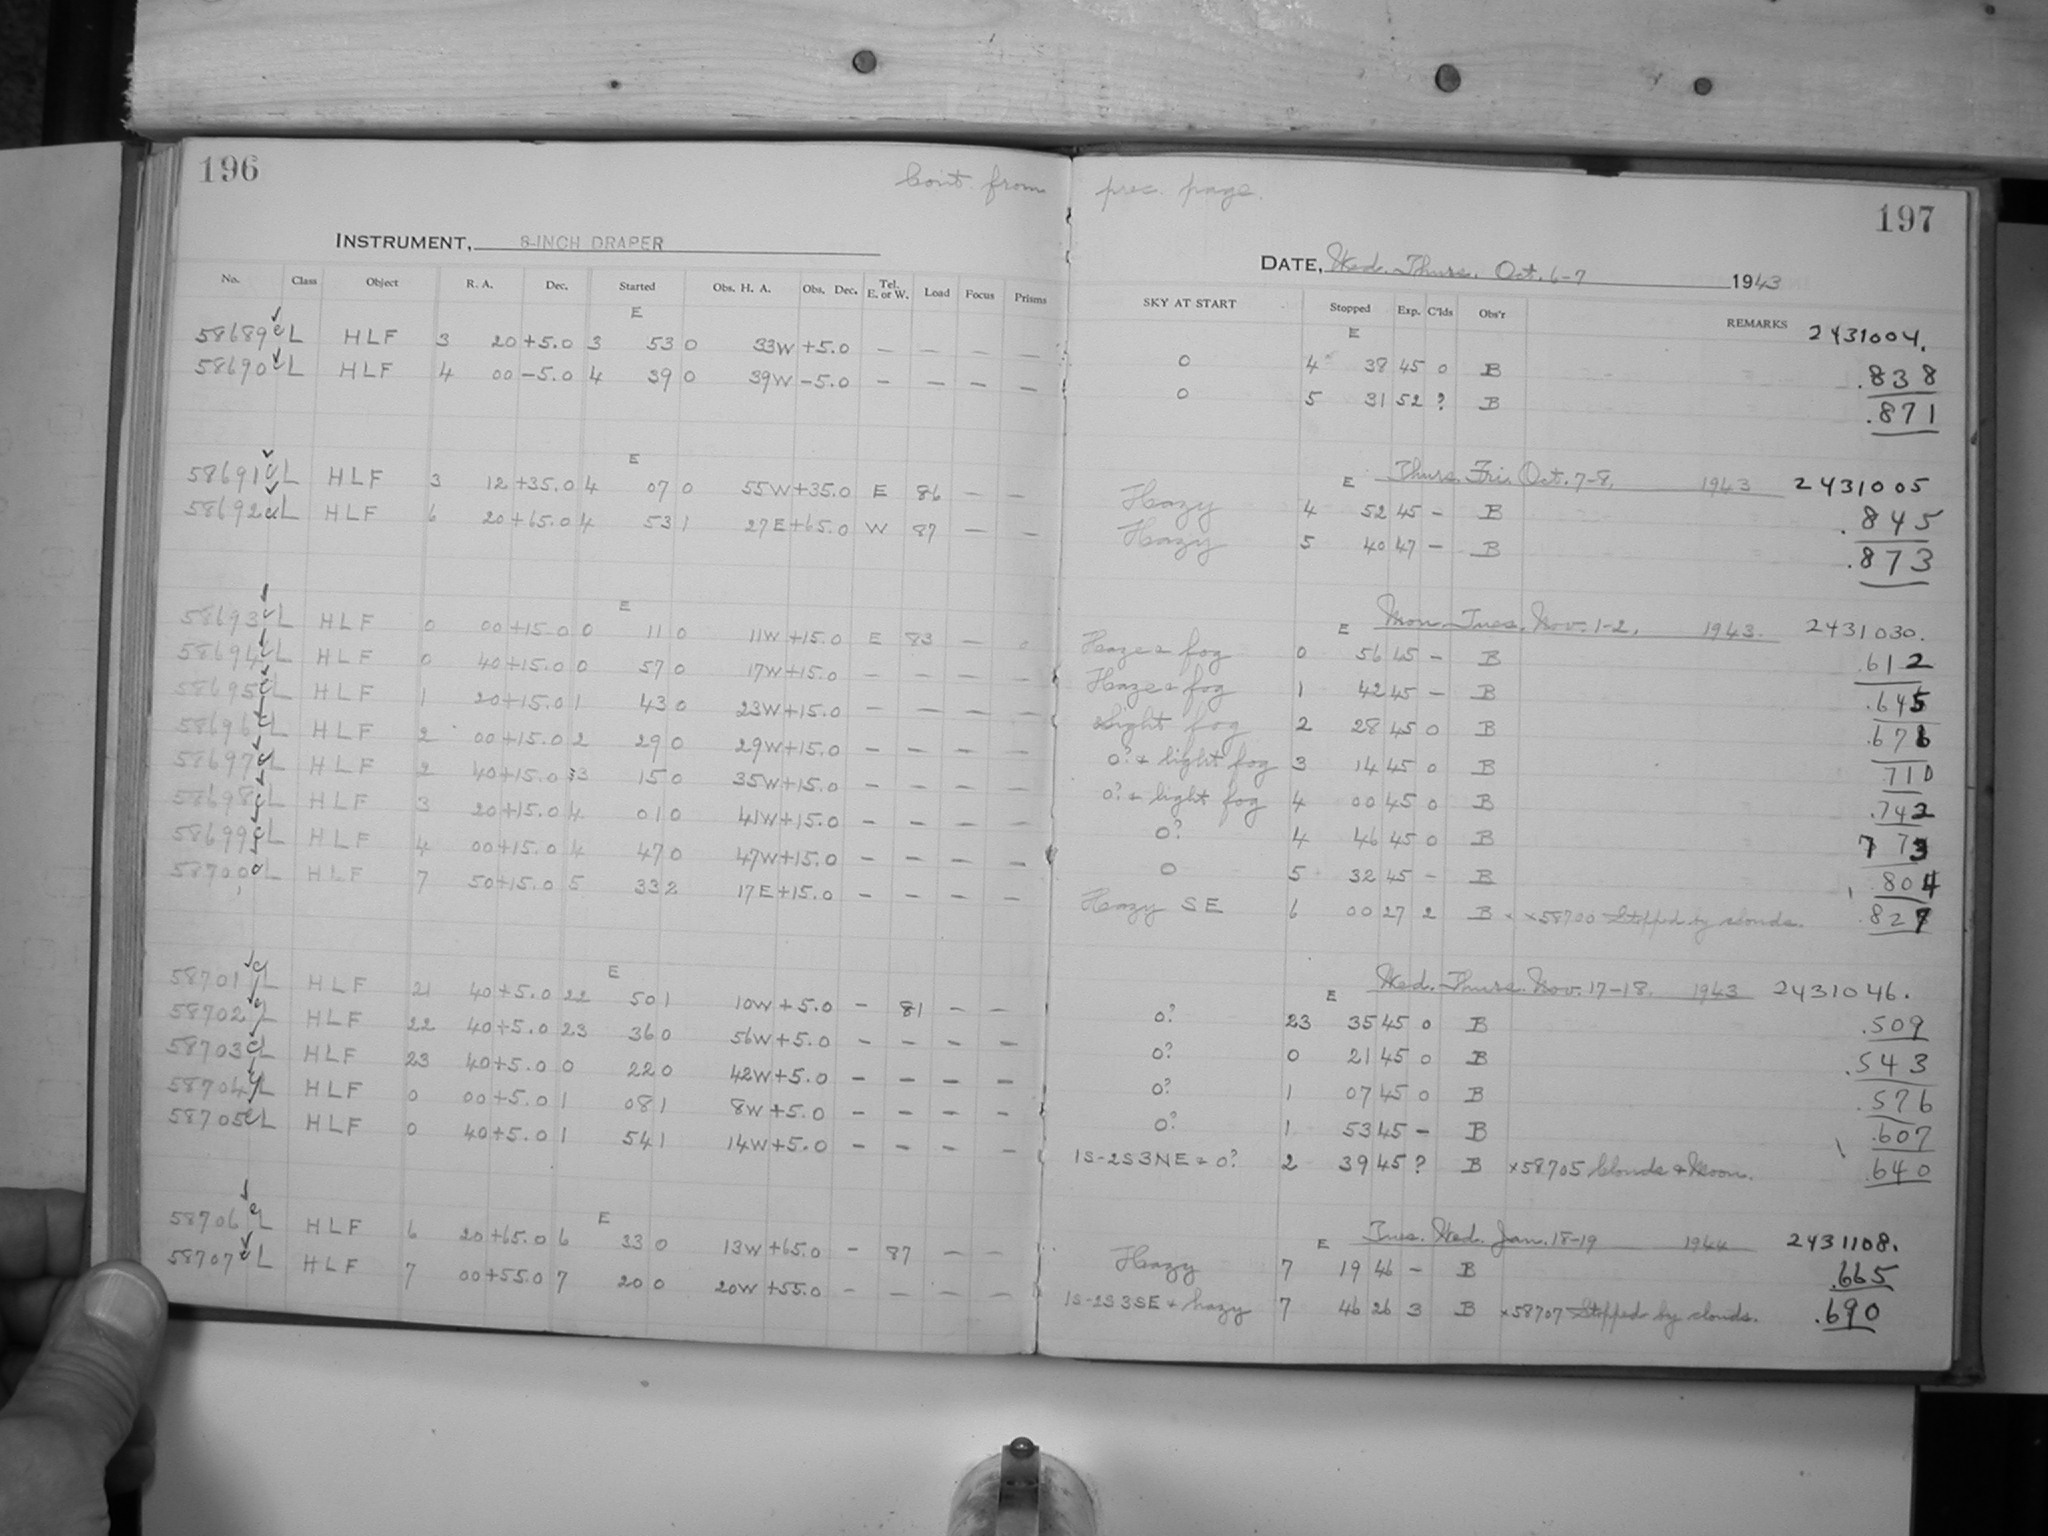 196
Cont. from prec. page.
197
INSTRUMENT, 8-INCH DRAPER
DATE, Wed. Thurs. Oct. 6-7 1943
No. Class Object R. A. Dec. Started Obs. H. A. Obs. Dec. Tel. E. or W. Load Focus Prisms SKY AT START Stopped Exp. C'lds Obs'r REMARKS 2431004.
E E
58689 c L HLF 3 20 +5.0 3 53 0 33W +5.0 — — — — 0 4 38 45 0 B .838
58690 c L HLF 4 00 -5.0 4 39 0 39W -5.0 — — — — 0 5 31 52 ? B .871
E E Thurs. Fri. Oct. 7-8, 1943 2431005
58691 c L HLF 3 12 +35.0 4 07 0 55W +35.0 E 86 — — Hazy 4 52 45 — B .845
58692 a L HLF 6 20 +65.0 4 53 1 27E +65.0 W 87 — — Hazy 5 40 47 — B .873
E E Mon. Tues. Nov. 1-2, 1943. 2431030.
58693 c L HLF 0 00 +15.0 0 11 0 11W +15.0 E 83 — 0 Haze & fog 0 56 45 — B .612
58694 c L HLF 0 40 +15.0 0 57 0 17W +15.0 — — — — Haze & fog 1 42 45 — B .645
58695 c L HLF 1 20 +15.0 1 43 0 23W +15.0 — — — — Slight fog 2 28 45 0 B .676
58696 c L HLF 2 00 +15.0 2 29 0 29W +15.0 — — — — 0? & light fog 3 14 45 0 B .710
58697 c L HLF 2 40 +15.0 3 15 0 35W +15.0 — — — — 0? & light fog 4 00 45 0 B .742
58698 c L HLF 3 20 +15.0 4 01 0 41W +15.0 — — — — 0? 4 46 45 0 B 773
58699 c L HLF 4 00 +15.0 4 47 0 47W +15.0 — — — — 0 5 32 45 — B .804
58700 a L HLF 7 50 +15.0 5 33 2 17E +15.0 — — — — Hazy SE 6 00 27 2 B × ×58700 Stopped by clouds. .827
E E Wed. Thurs. Nov. 17-18. 1943 2431046.
58701 c L HLF 21 40 +5.0 22 50 1 10W +5.0 — 81 — — 0? 23 35 45 0 B .509
58702 c L HLF 22 40 +5.0 23 36 0 56W +5.0 — — — — 0? 0 21 45 0 B .543
58703 c L HLF 23 40 +5.0 0 22 0 42W +5.0 — — — — 0? 1 07 45 0 B .576
58704 c L HLF 0 00 +5.0 1 08 1 8W +5.0 — — — — 0? 1 53 45 — B .607
58705 c L HLF 0 40 +5.0 1 54 1 14W +5.0 — — — — 1S-2S3NE & 0? 2 39 45 ? B ×58705 Clouds & Moon. .640
E E Tues. Wed. Jan. 18-19 1944 2431108.
58706 c L HLF 6 20 +65.0 6 33 0 13W +65.0 — 87 — — Hazy 7 19 46 — B .665
58707 c L HLF 7 00 +55.0 7 20 0 20W +55.0 — — — — 1S-2S3SE & hazy 7 46 26 3 B ×58707 Stopped by clouds. .690